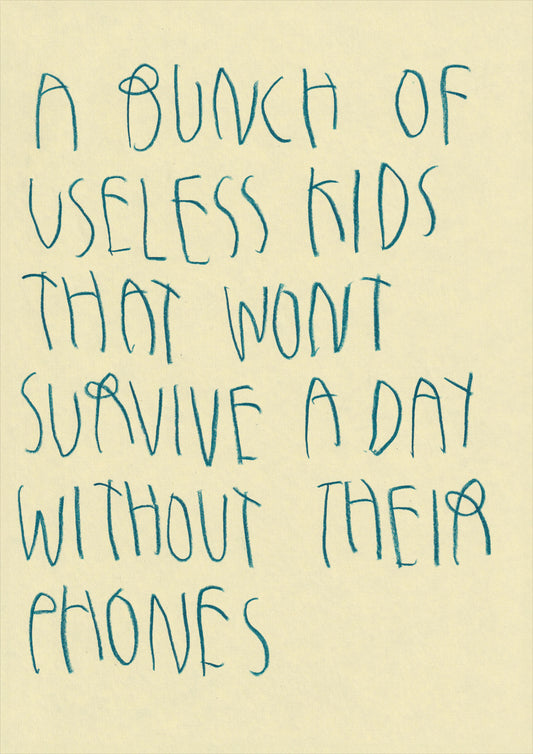 A BUNCH OF
USELESS KIDS
THAT WONT
SURVIVE A DAY
WITHOUT THEIR
PHONES